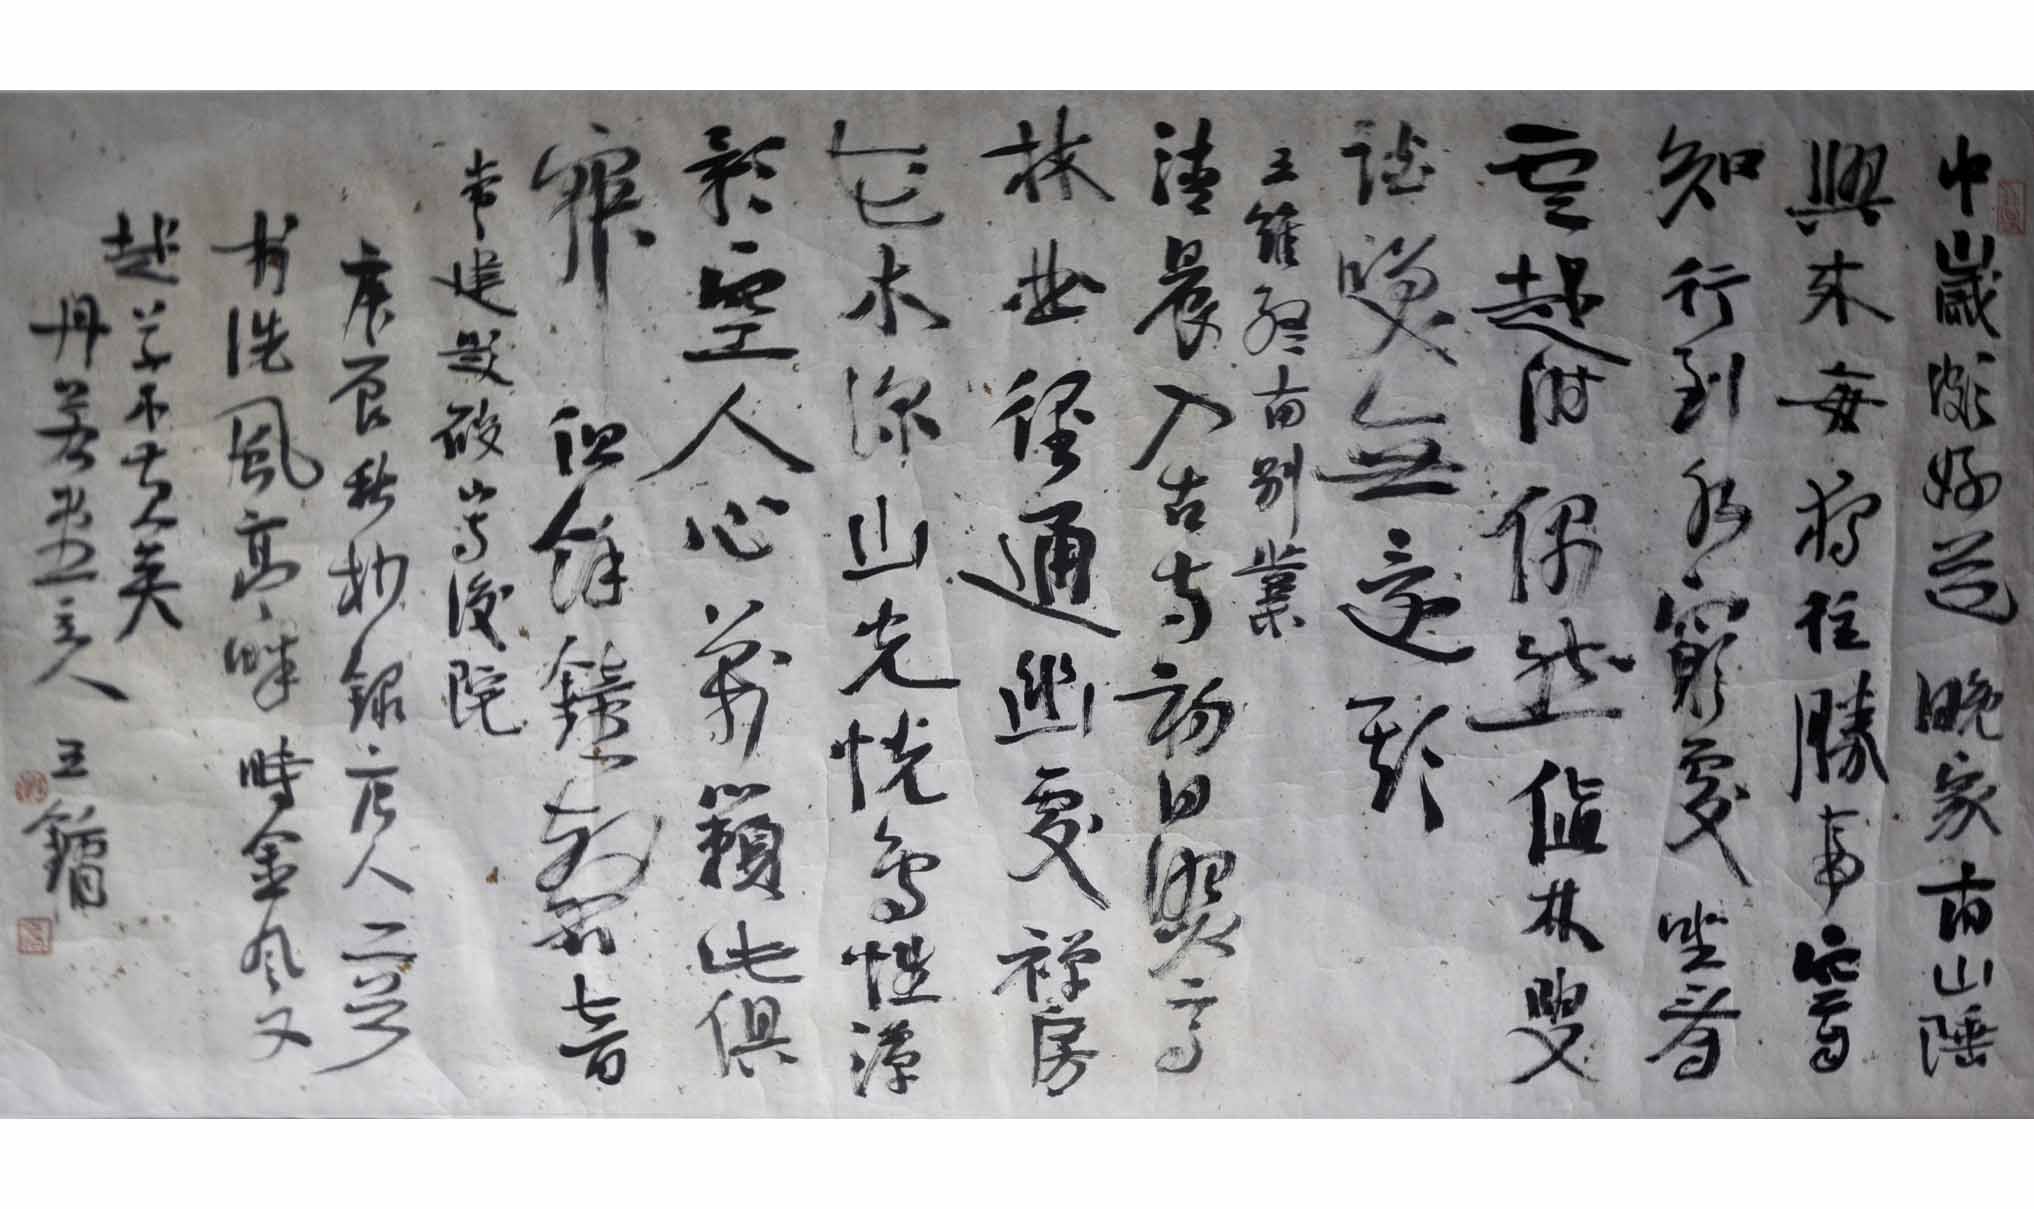 中歲頗好道晚家南山陲
興來每獨往勝事空自
知行到水窮處坐看
雲起時偶然值林叟
談笑無還期
王維終南別業
清晨入古寺初日照高
林曲徑通幽處禪房
花木深山光悅鳥性潭
影空人心萬籟此俱
寂但餘鐘磬音
常建題破山寺後院
庚辰秋抄錄唐人二首
於洗風亭畔時金風又
起矣
丹若 主人 王鏞